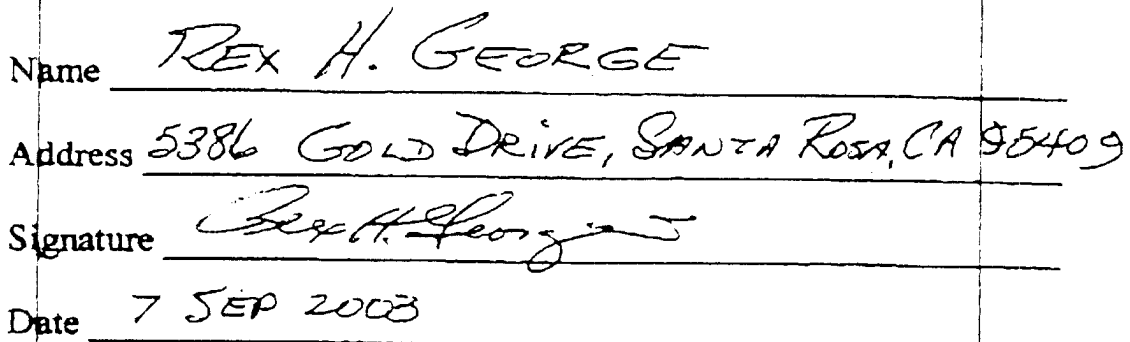 Name REX H. GEORGE
Address 5386 GOLD DRIVE, SANTA ROSA, CA 95409
Signature Rex H. George
Date 7 SEP 2003